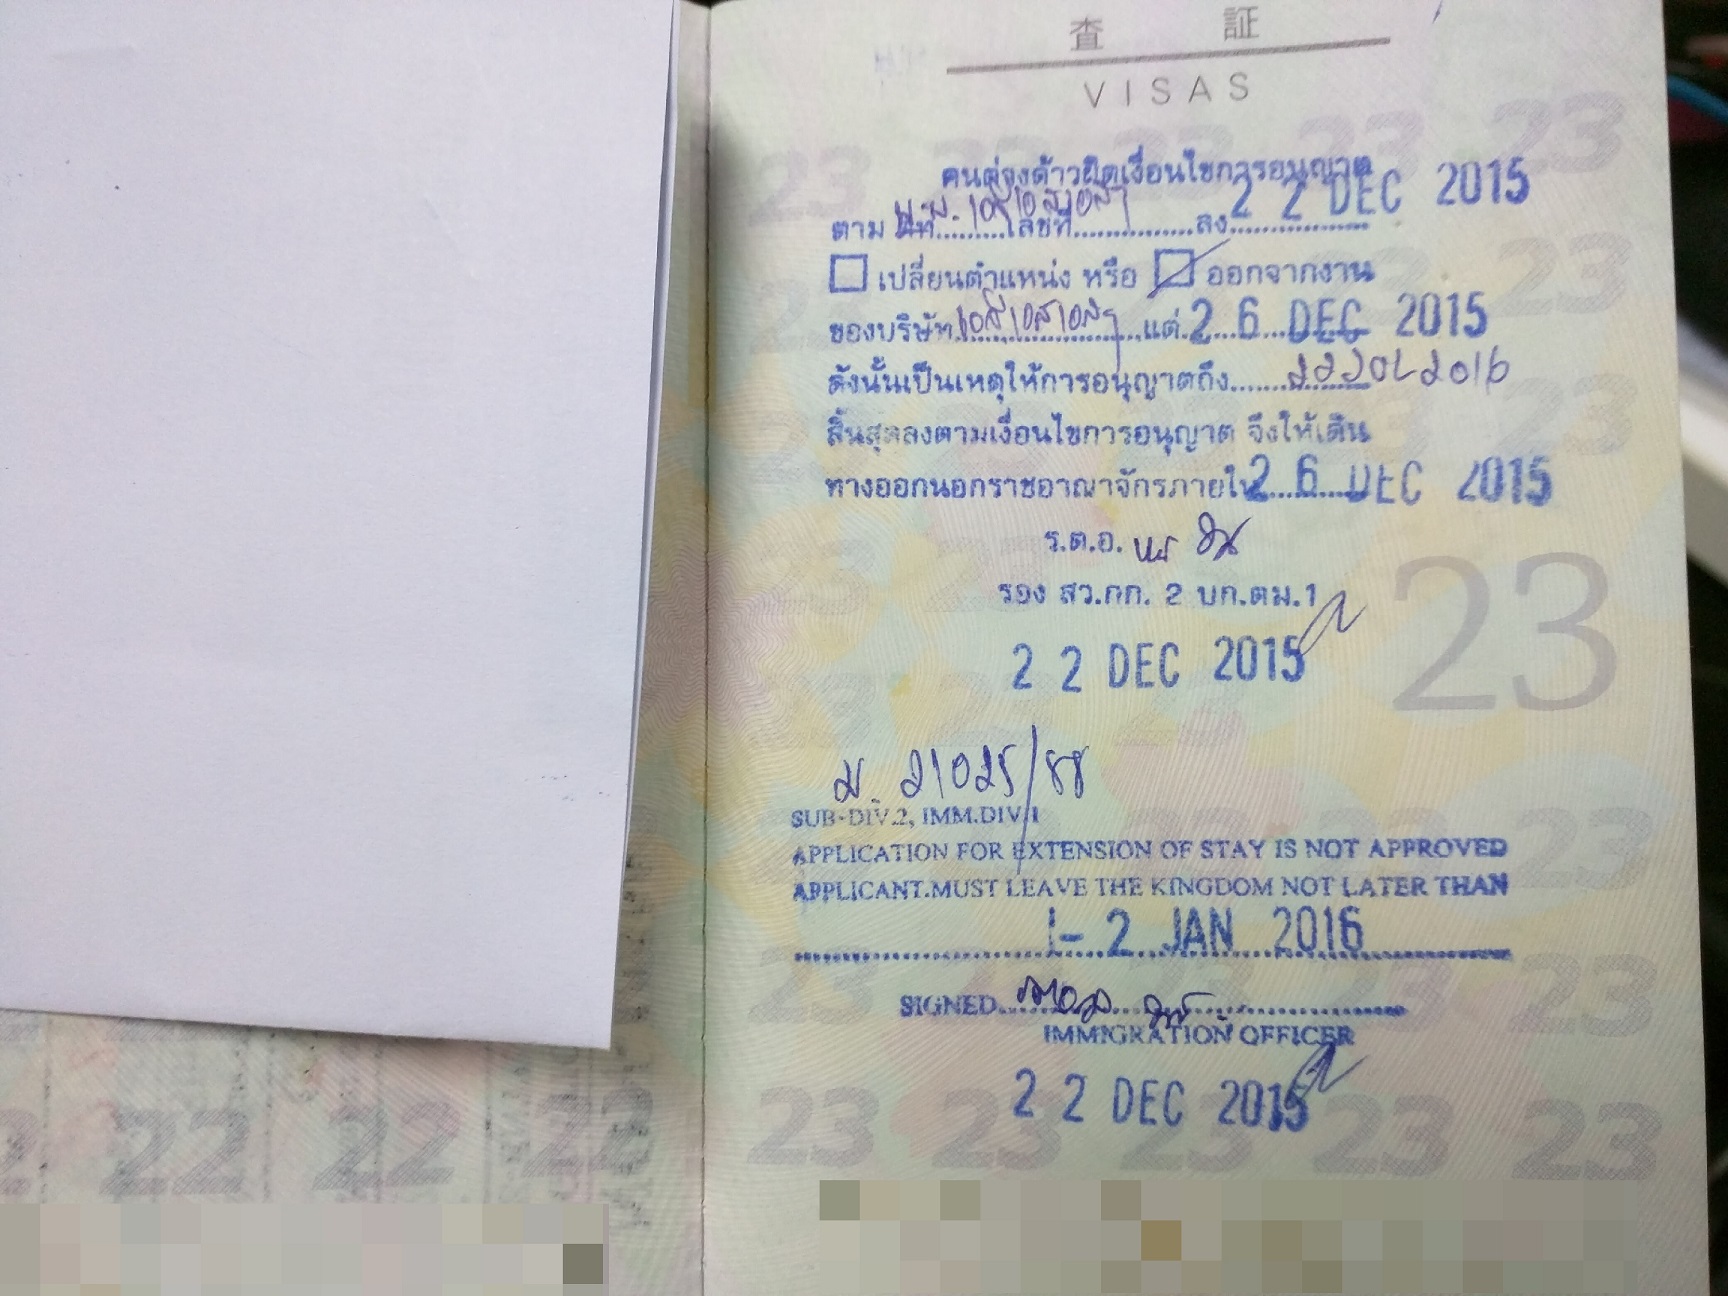 査 証
VISAS
คนต่างด้าวผิดเงื่อนไขการอนุญาต
ตาม ที่.........เลขที่...............ลง 22 DEC 2015
เปลี่ยนตำแหน่ง หรือ ออกจากงาน
ของบริษัท เอสเอสเอสฯ แต่ 26 DEC 2015
ดังนั้นเป็นเหตุให้การอนุญาตถึง 2016
สิ้นสุดลงตามเงื่อนไขการอนุญาต จึงให้เดิน
ทางออกนอกราชอาณาจักรภายใน 26 DEC 2015
ร.ต.อ.
รอง สว.กก. 2 บก.ตม.1
22 DEC 2015
23
21025/88
SUB-DIV.2, IMM.DIV.1
APPLICATION FOR EXTENSION OF STAY IS NOT APPROVED
APPLICANT.MUST LEAVE THE KINGDOM NOT LATER THAN
- 2 JAN 2016
SIGNED
IMMIGRATION OFFICER
22 DEC 2015